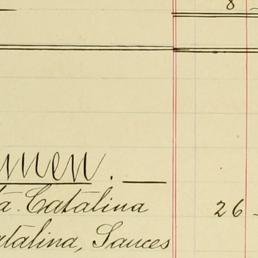 8
men.
ta. Catalina 26
atalina, Sauces